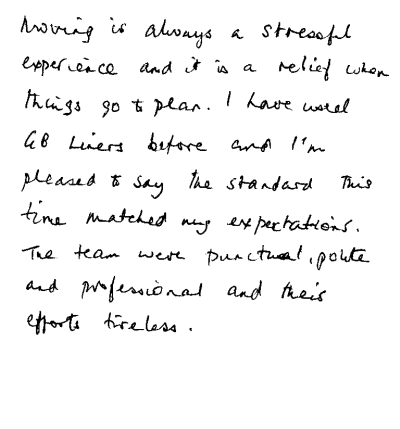 Moving is always a stressful
experience and it is a relief when
things go to plan. I have used
GB Liners before and I'm
pleased to say the standard this
time matched my expectations.
The team were punctual, polite
and professional and their
efforts tireless.